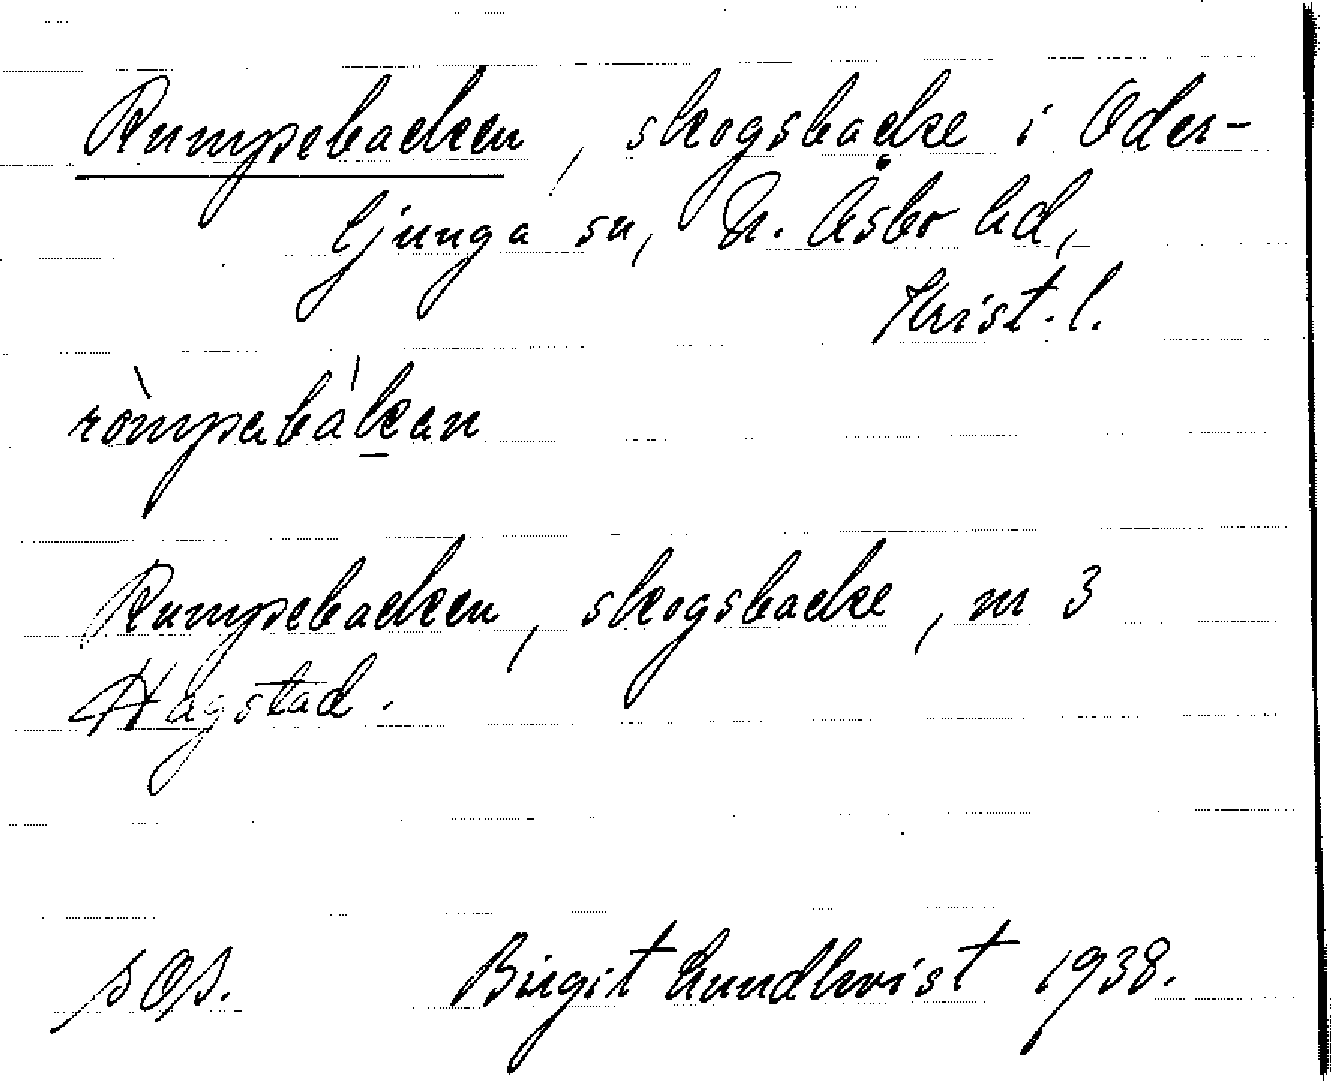 Rumpebacken, skogsbacke i Oder-
ljunga sn, N. Åsbo hd,
Krist. l.
ròmpabàkan
Rumpebacken, skogsbacke, m 3
Hagstad.
SOS. Birgit Lundkvist 1938.